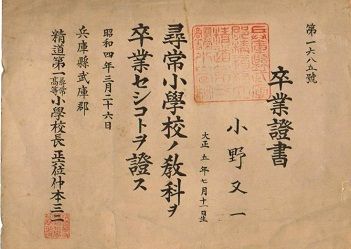 第一六八五號
卒業證書
小野又一
大正五年七月十一日生
尋常小學校ノ教科ヲ
卒業セシコトヲ證ス
昭和四年三月二十六日
兵庫縣武庫郡
精道第一尋常高等小學校長正益仲本三二